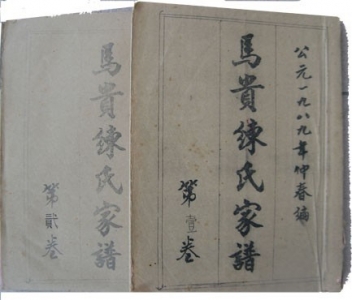 公元一九八九年仲春編
馬貴練氏家譜
第壹卷
馬貴練氏家譜
第貳卷